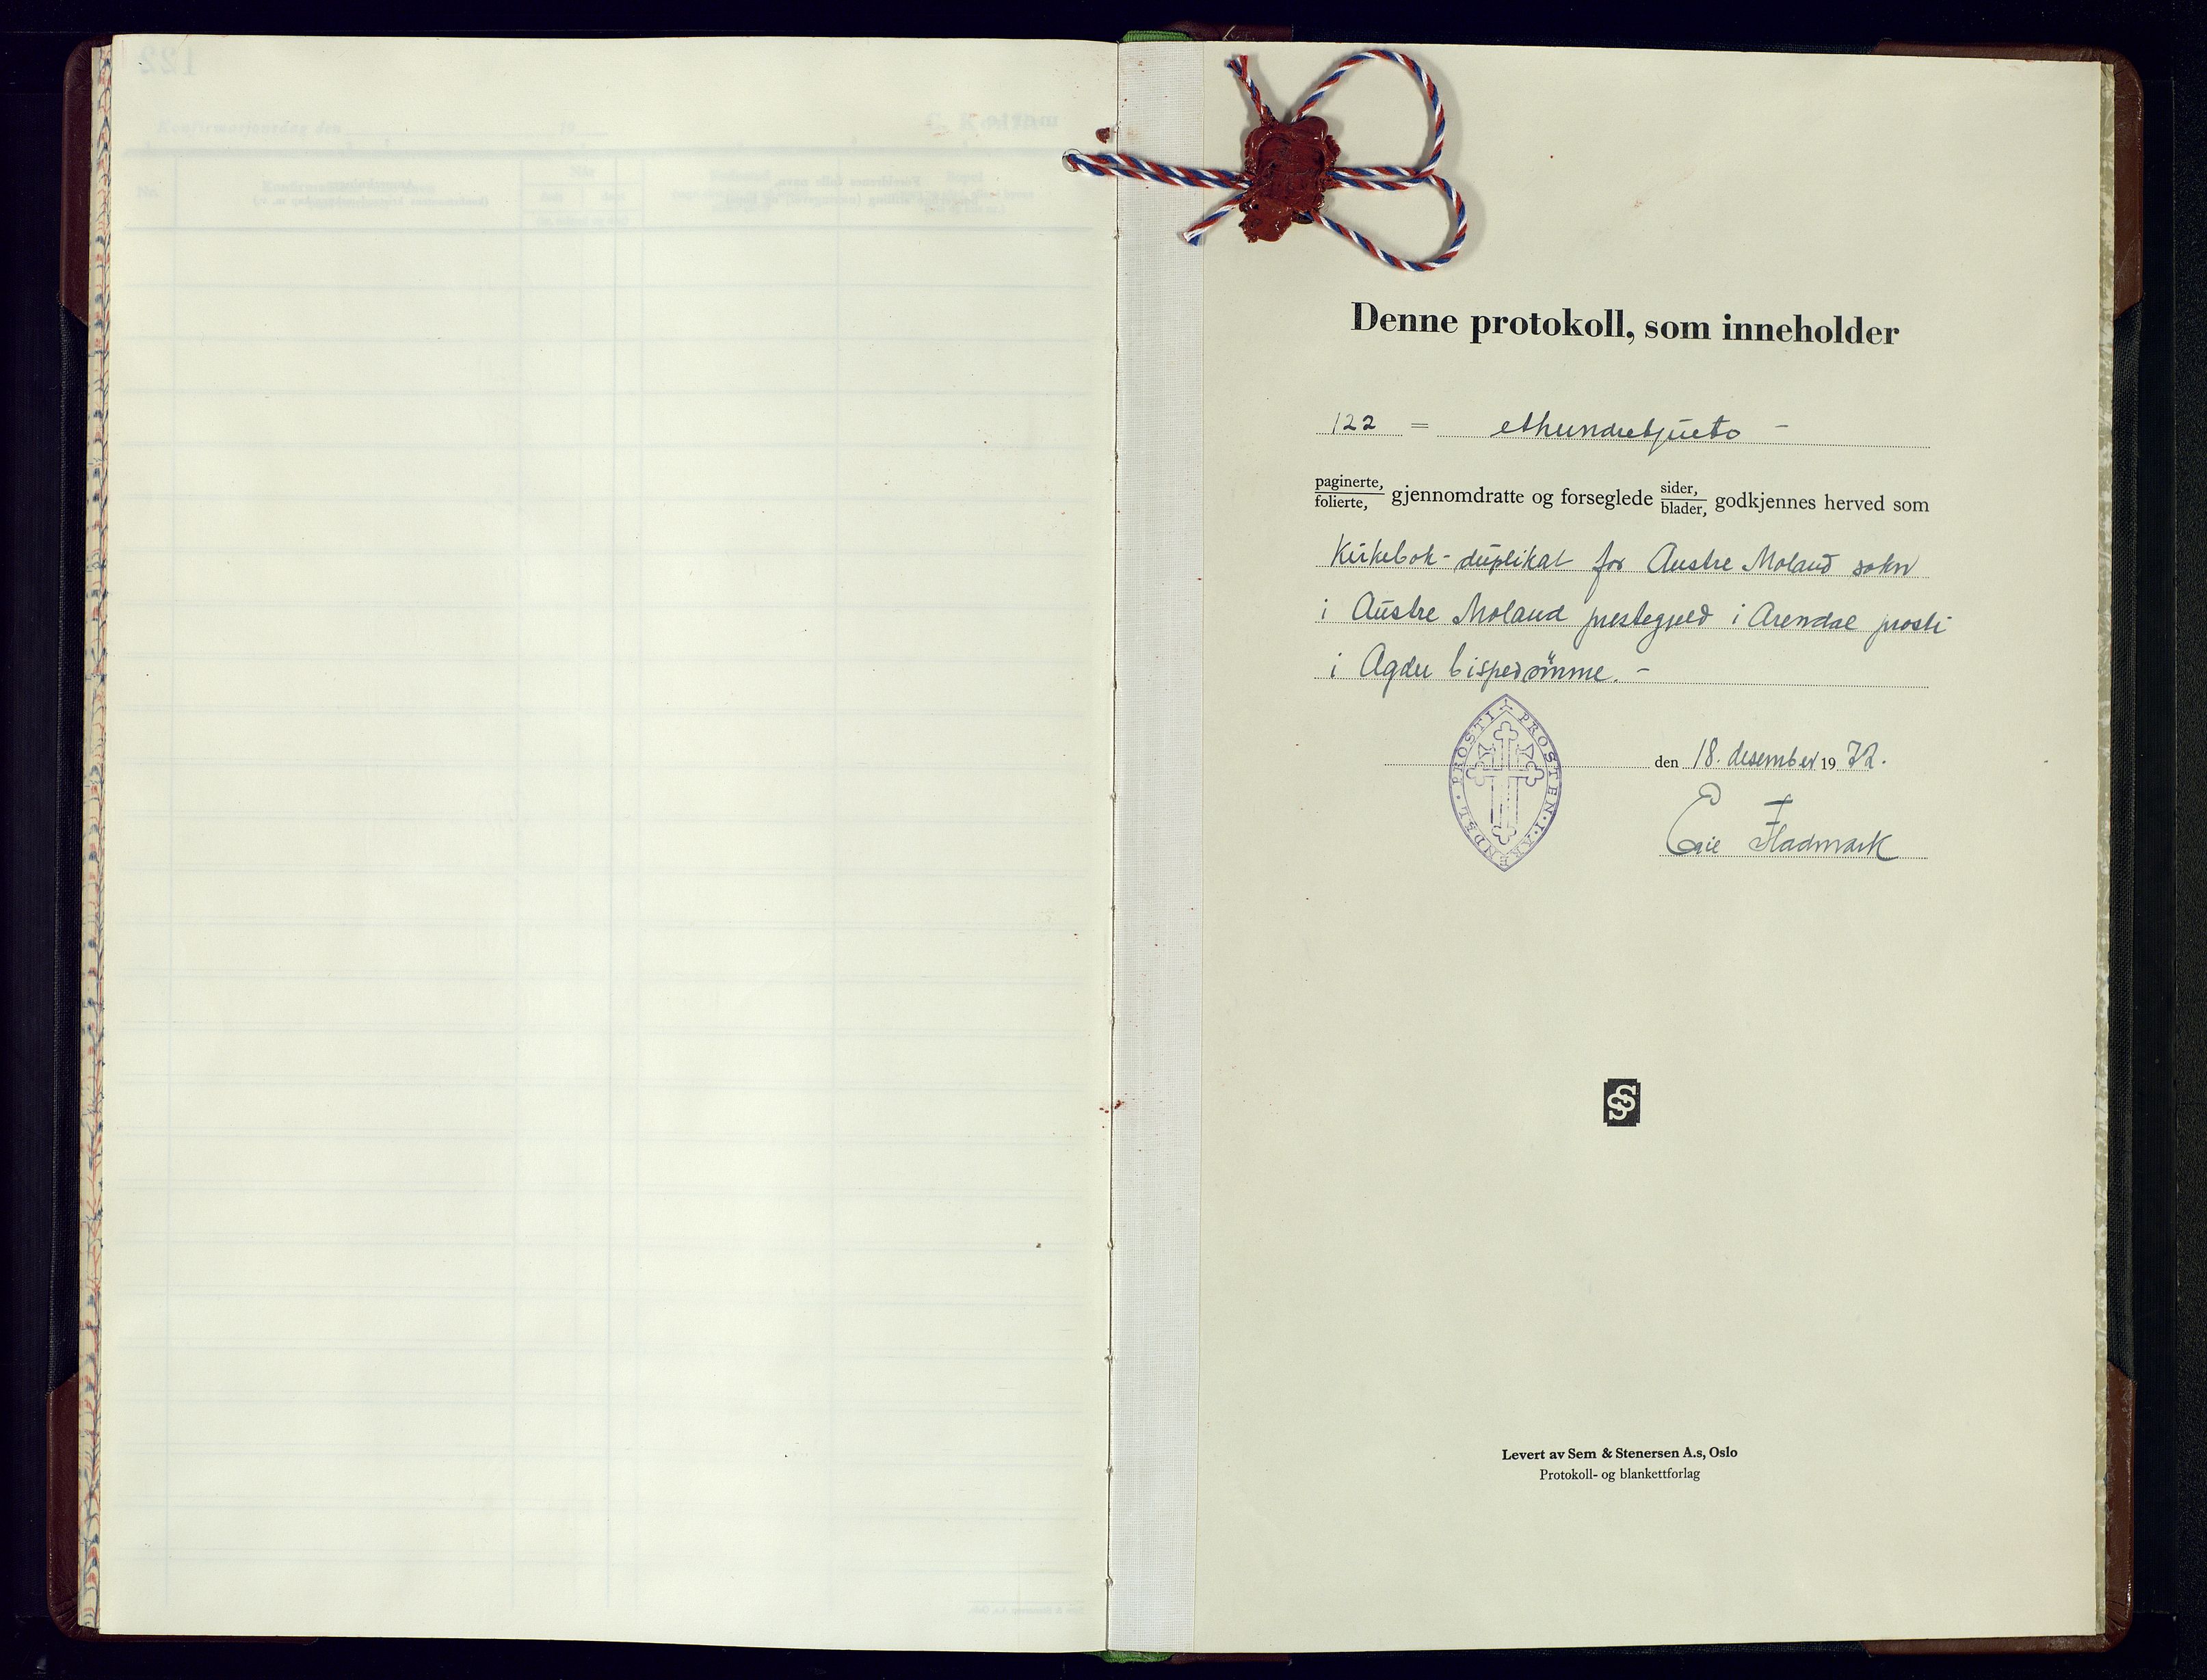 Denne protokoll, som inneholder
122 = ethundretjueto -
paginerte,
folierte, gjennomdratte og forseglede sider,
blader, godkjennes herved som
Kirkebok-duplikat for Austre Moland sokn
i Austre Moland prestegjeld i Arendal prosti
i Agder bispedømme. -
den 18. desember 1972.
PROSTEN · I · ARENDEL · PROSTI
Fladmark
SS
Levert av Sem & Stenersen A.s, Oslo
Protokoll- og blankettforlag